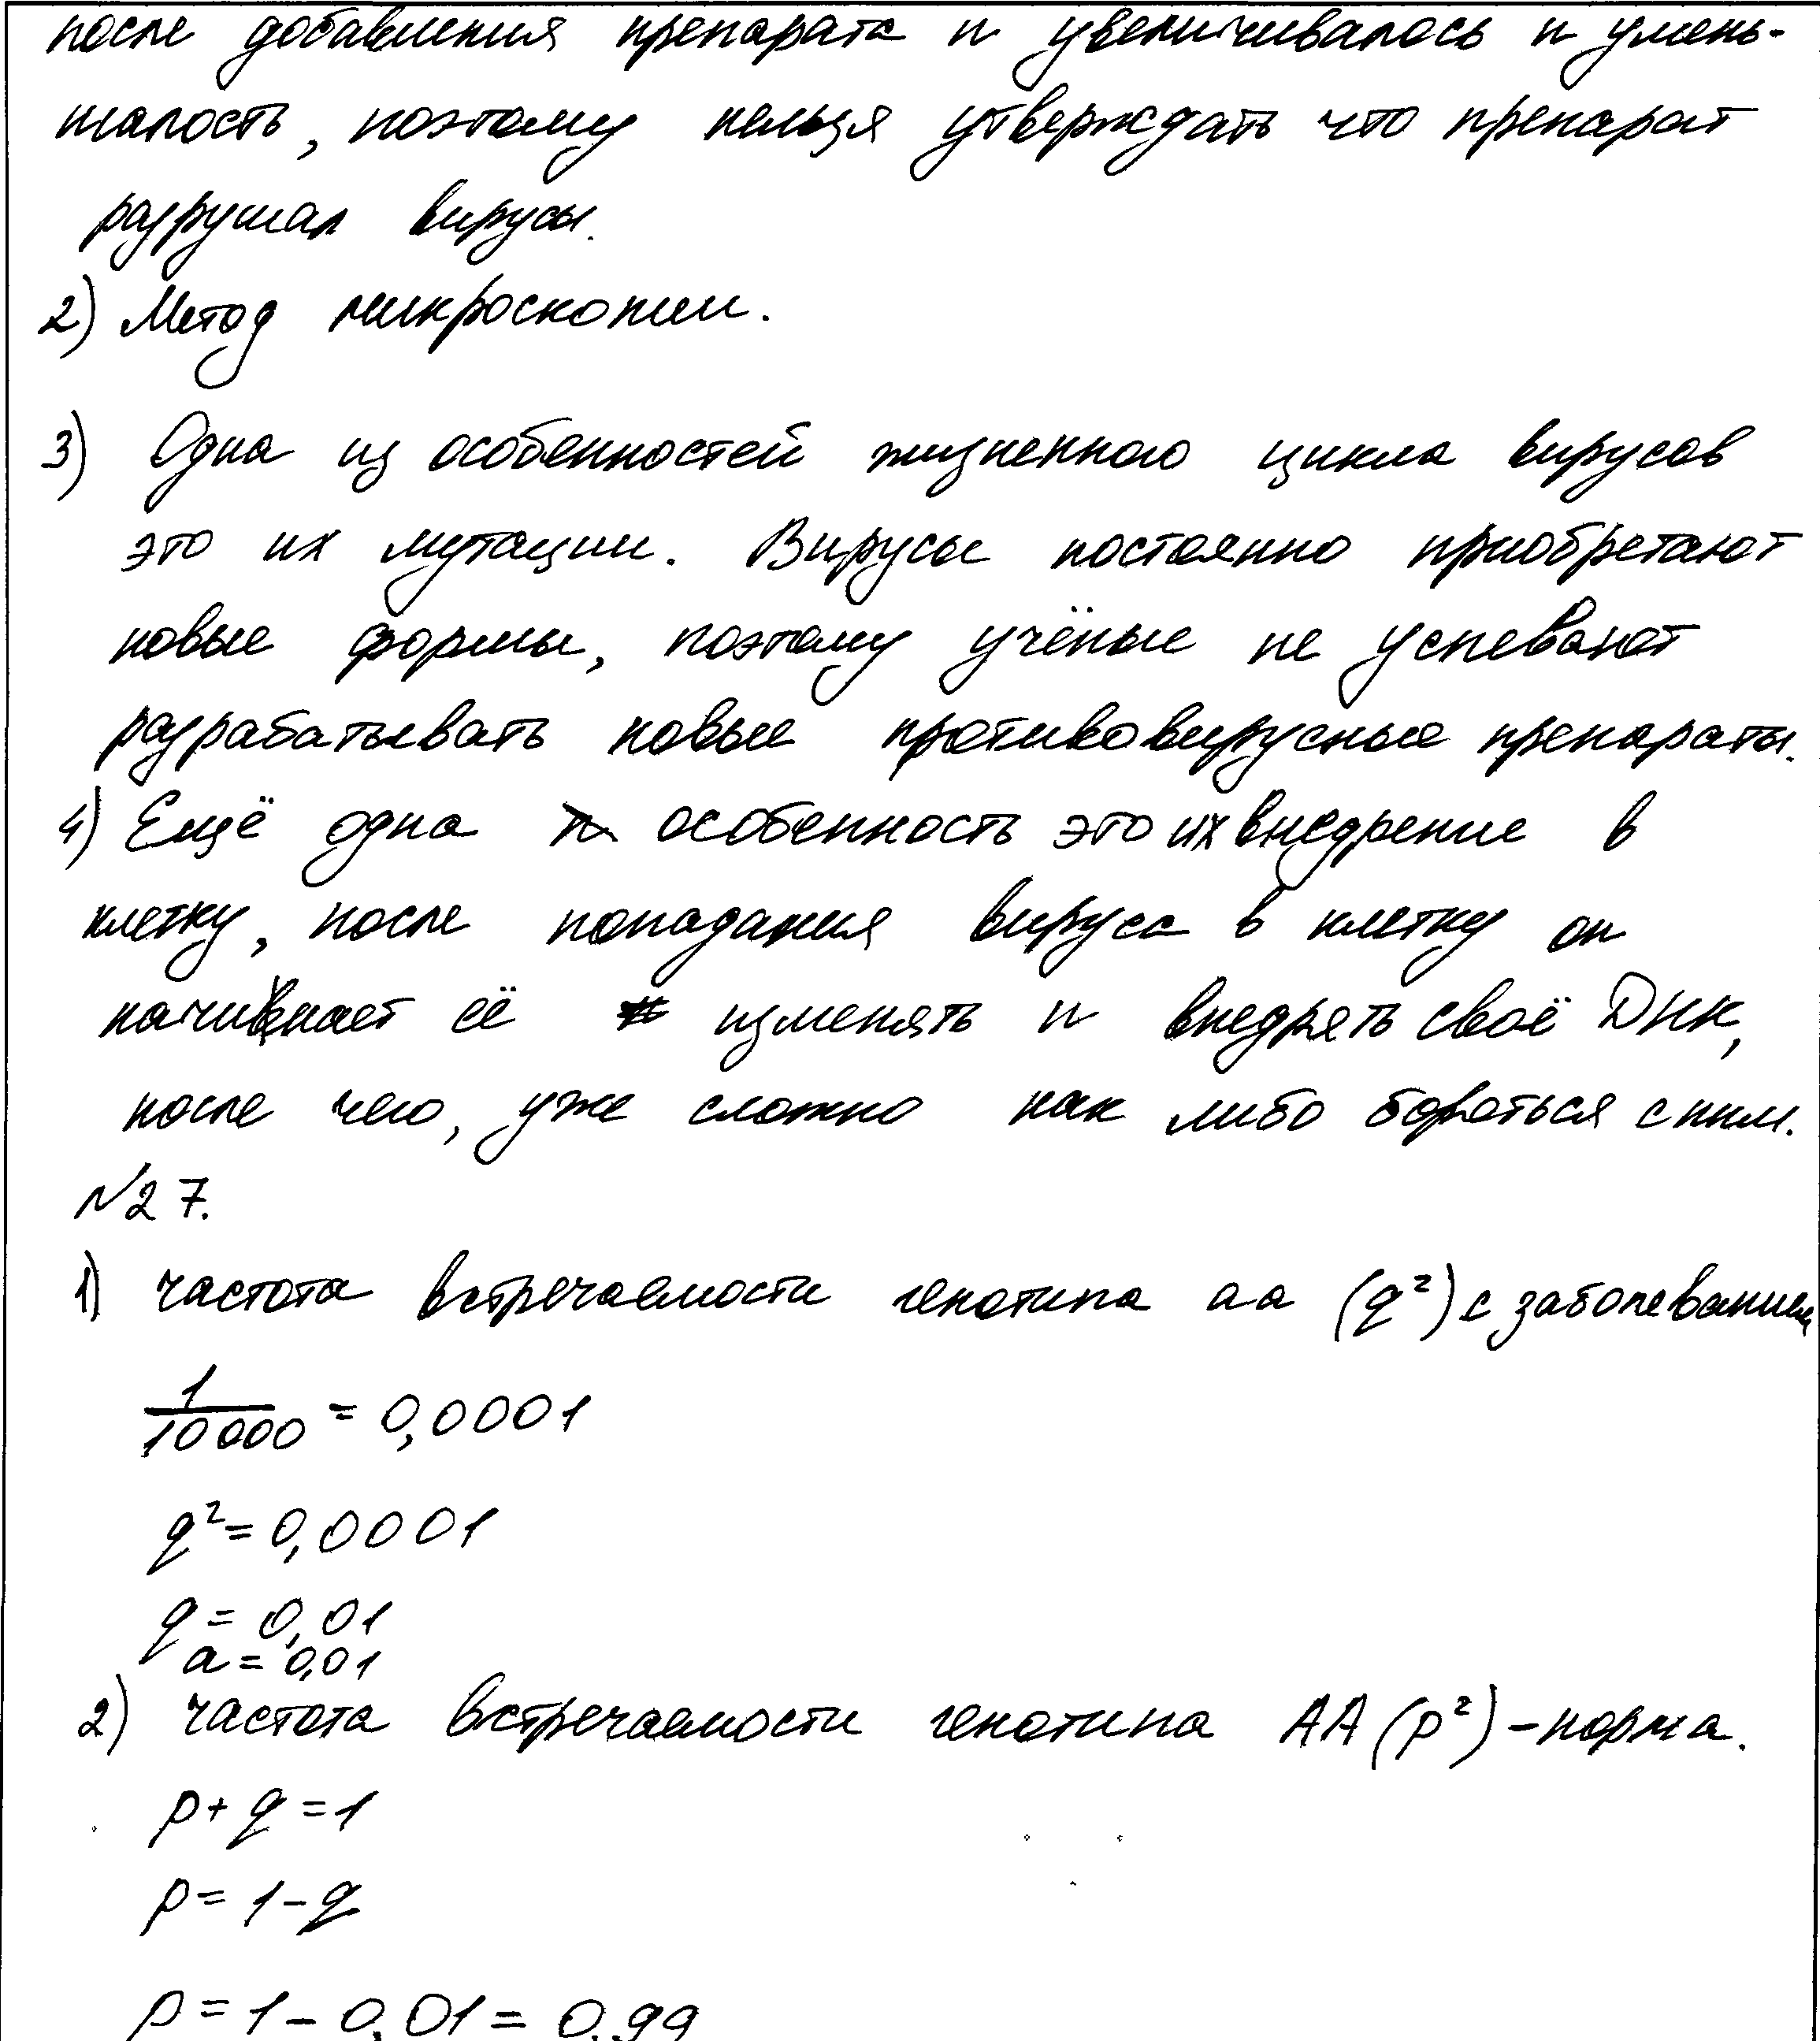 после добавления препарата и увеличивалось и умень-
шалость, поэтому нельзя утверждать что препарат
разрушал вирусы.
2) Метод микроскопии.
3) Одна из особенностей жизненного цикла вирусов
это их мутации. Вирусы постоянно приобретают
новые формы, поэтому учёные не успевают
разрабатывать новые противовирусные препараты.
4) Ещё одна особенность это их внедрение в
клетку, после попадания вируса в клетку он
начинает её изменять и внедрять своё ДНК,
после чего, уже сложно как либо бороться с ним.
№27.
1) частота встречаемости генотипа аа (q²) с заболеванием
1/10000 = 0,0001
q² = 0,0001
q = 0,01
a = 0,01
2) частота встречаемости генотипа АА (p²) – норма.
p + q = 1
p = 1 – q
p = 1 – 0,01 = 0,99